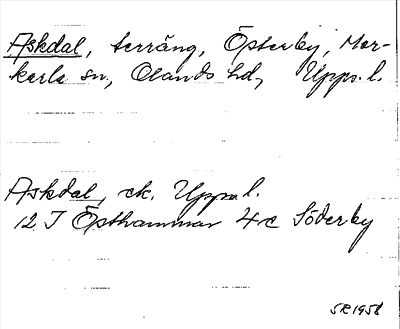 Askdal, terräng, Österby, Mor-
karla sn, Olands hd, Upps. l.
Askdal, ek. Upps. l.
12 I Östhammar 4 c Söderby
SR 1958